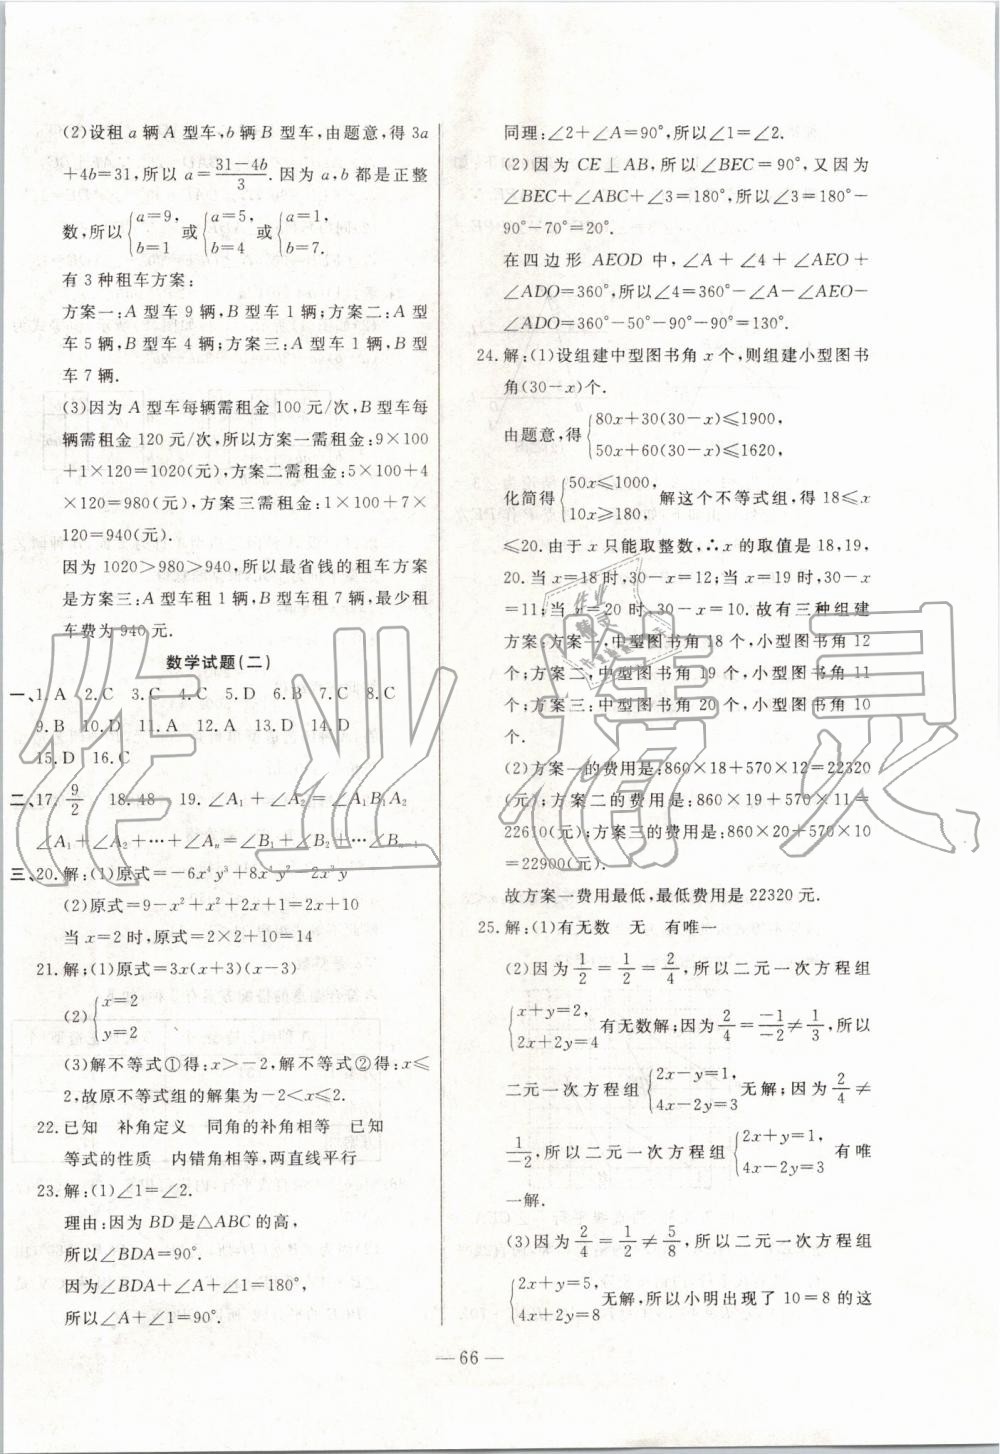 (2)设租 a 辆 A 型车,b 辆 B 型车,由题意,得 3a
+4b=31,所以 a=\frac{31-4b}{3}.因为 a,b 都是正整
数,所以{a=9, b=1 或{a=5, b=4 或{a=1, b=7.
有 3 种租车方案:
方案一:A 型车 9 辆,B 型车 1 辆;方案二:A 型
车 5 辆,B 型车 4 辆;方案三:A 型车 1 辆,B 型
车 7 辆.
(3)因为 A 型车每辆需租金 100 元/次,B 型车每
辆需租金 120 元/次,所以方案一需租金:9×100
+1×120=1020(元),方案二需租金:5×100+4
×120=980(元),方案三需租金:1×100+7×
120=940(元).
因为 1020>980>940,所以最省钱的租车方案
是方案三:A 型车租 1 辆,B 型车租 7 辆,最少租
车费为 940 元.
数学试题(二)
一、1. A 2. C 3. C 4. C 5. D 6. B 7. C 8. C
9. B 10. D 11. A 12. A 13. D 14. D
15. D 16. C
二、17. \frac{9}{2} 18. 48 19. ∠A₁+∠A₂=∠A₁B₁A₂
∠A₁+∠A₂+…+∠Aₙ=∠B₁+∠B₂+…∠Bₙ₋₁
三、20. 解:(1)原式=-6x⁴y³+8x⁴y²-2x³y
(2)原式=9-x²+x²+2x+1=2x+10
当 x=2 时,原式=2×2+10=14
21. 解:(1)原式=3x(x+3)(x-3)
(2){x=2 y=2
(3)解不等式①得:x>-2,解不等式②得:x≤
2,故原不等式组的解集为-2<x≤2.
22. 已知 补角定义 同角的补角相等 已知
等式的性质 内错角相等,两直线平行
23. 解:(1)∠1=∠2.
理由:因为 BD 是△ABC 的高,
所以∠BDA=90°.
因为∠BDA+∠A+∠1=180°,
所以∠A+∠1=90°.
同理:∠2+∠A=90°,所以∠1=∠2.
(2)因为 CE⊥AB,所以∠BEC=90°,又因为
∠BEC+∠ABC+∠3=180°,所以∠3=180°-
90°-70°=20°.
在四边形 AEOD 中,∠A+∠4+∠AEO+
∠ADO=360°,所以∠4=360°-∠A-∠AEO-
∠ADO=360°-50°-90°-90°=130°.
24. 解:(1)设组建中型图书角 x 个,则组建小型图书
角(30-x)个.
由题意,得{80x+30(30-x)≤1900, 50x+60(30-x)≤1620,
化简得{50x≤1000, 10x≥180, 解这个不等式组,得 18≤x
≤20.由于 x 只能取整数,∴x 的取值是 18,19,
20.当 x=18 时,30-x=12;当 x=19 时,30-x
=11;当 x=20 时,30-x=10.故有三种组建
方案:方案一,中型图书角 18 个,小型图书角 12
个;方案二,中型图书角 19 个,小型图书角 11
个;方案三:中型图书角 20 个,小型图书角 10
个.
(2)方案一的费用是:860×18+570×12=22320
(元);方案二的费用是:860×19+570×11=
22610(元);方案三的费用是:860×20+570×10
=22900(元).
故方案一费用最低,最低费用是 22320 元.
25. 解:(1)有无数 无 有唯一
(2)因为\frac{1}{2}=\frac{1}{2}=\frac{2}{4},所以二元一次方程组
{x+y=2, 2x+2y=4 有无数解;因为\frac{2}{4}=\frac{-1}{-2}≠\frac{1}{3},所以
二元一次方程组{2x-y=1, 4x-2y=3 无解;因为\frac{2}{4}≠
\frac{1}{-2},所以二元一次方程组{2x+y=1, 4x-2y=3 有唯
一解.
(3)因为\frac{2}{4}=\frac{1}{2}≠\frac{5}{8},所以二元一次方程组
{2x+y=5, 4x+2y=8 无解,所以小明出现了 10=8 的这
— 66 —
作业精灵